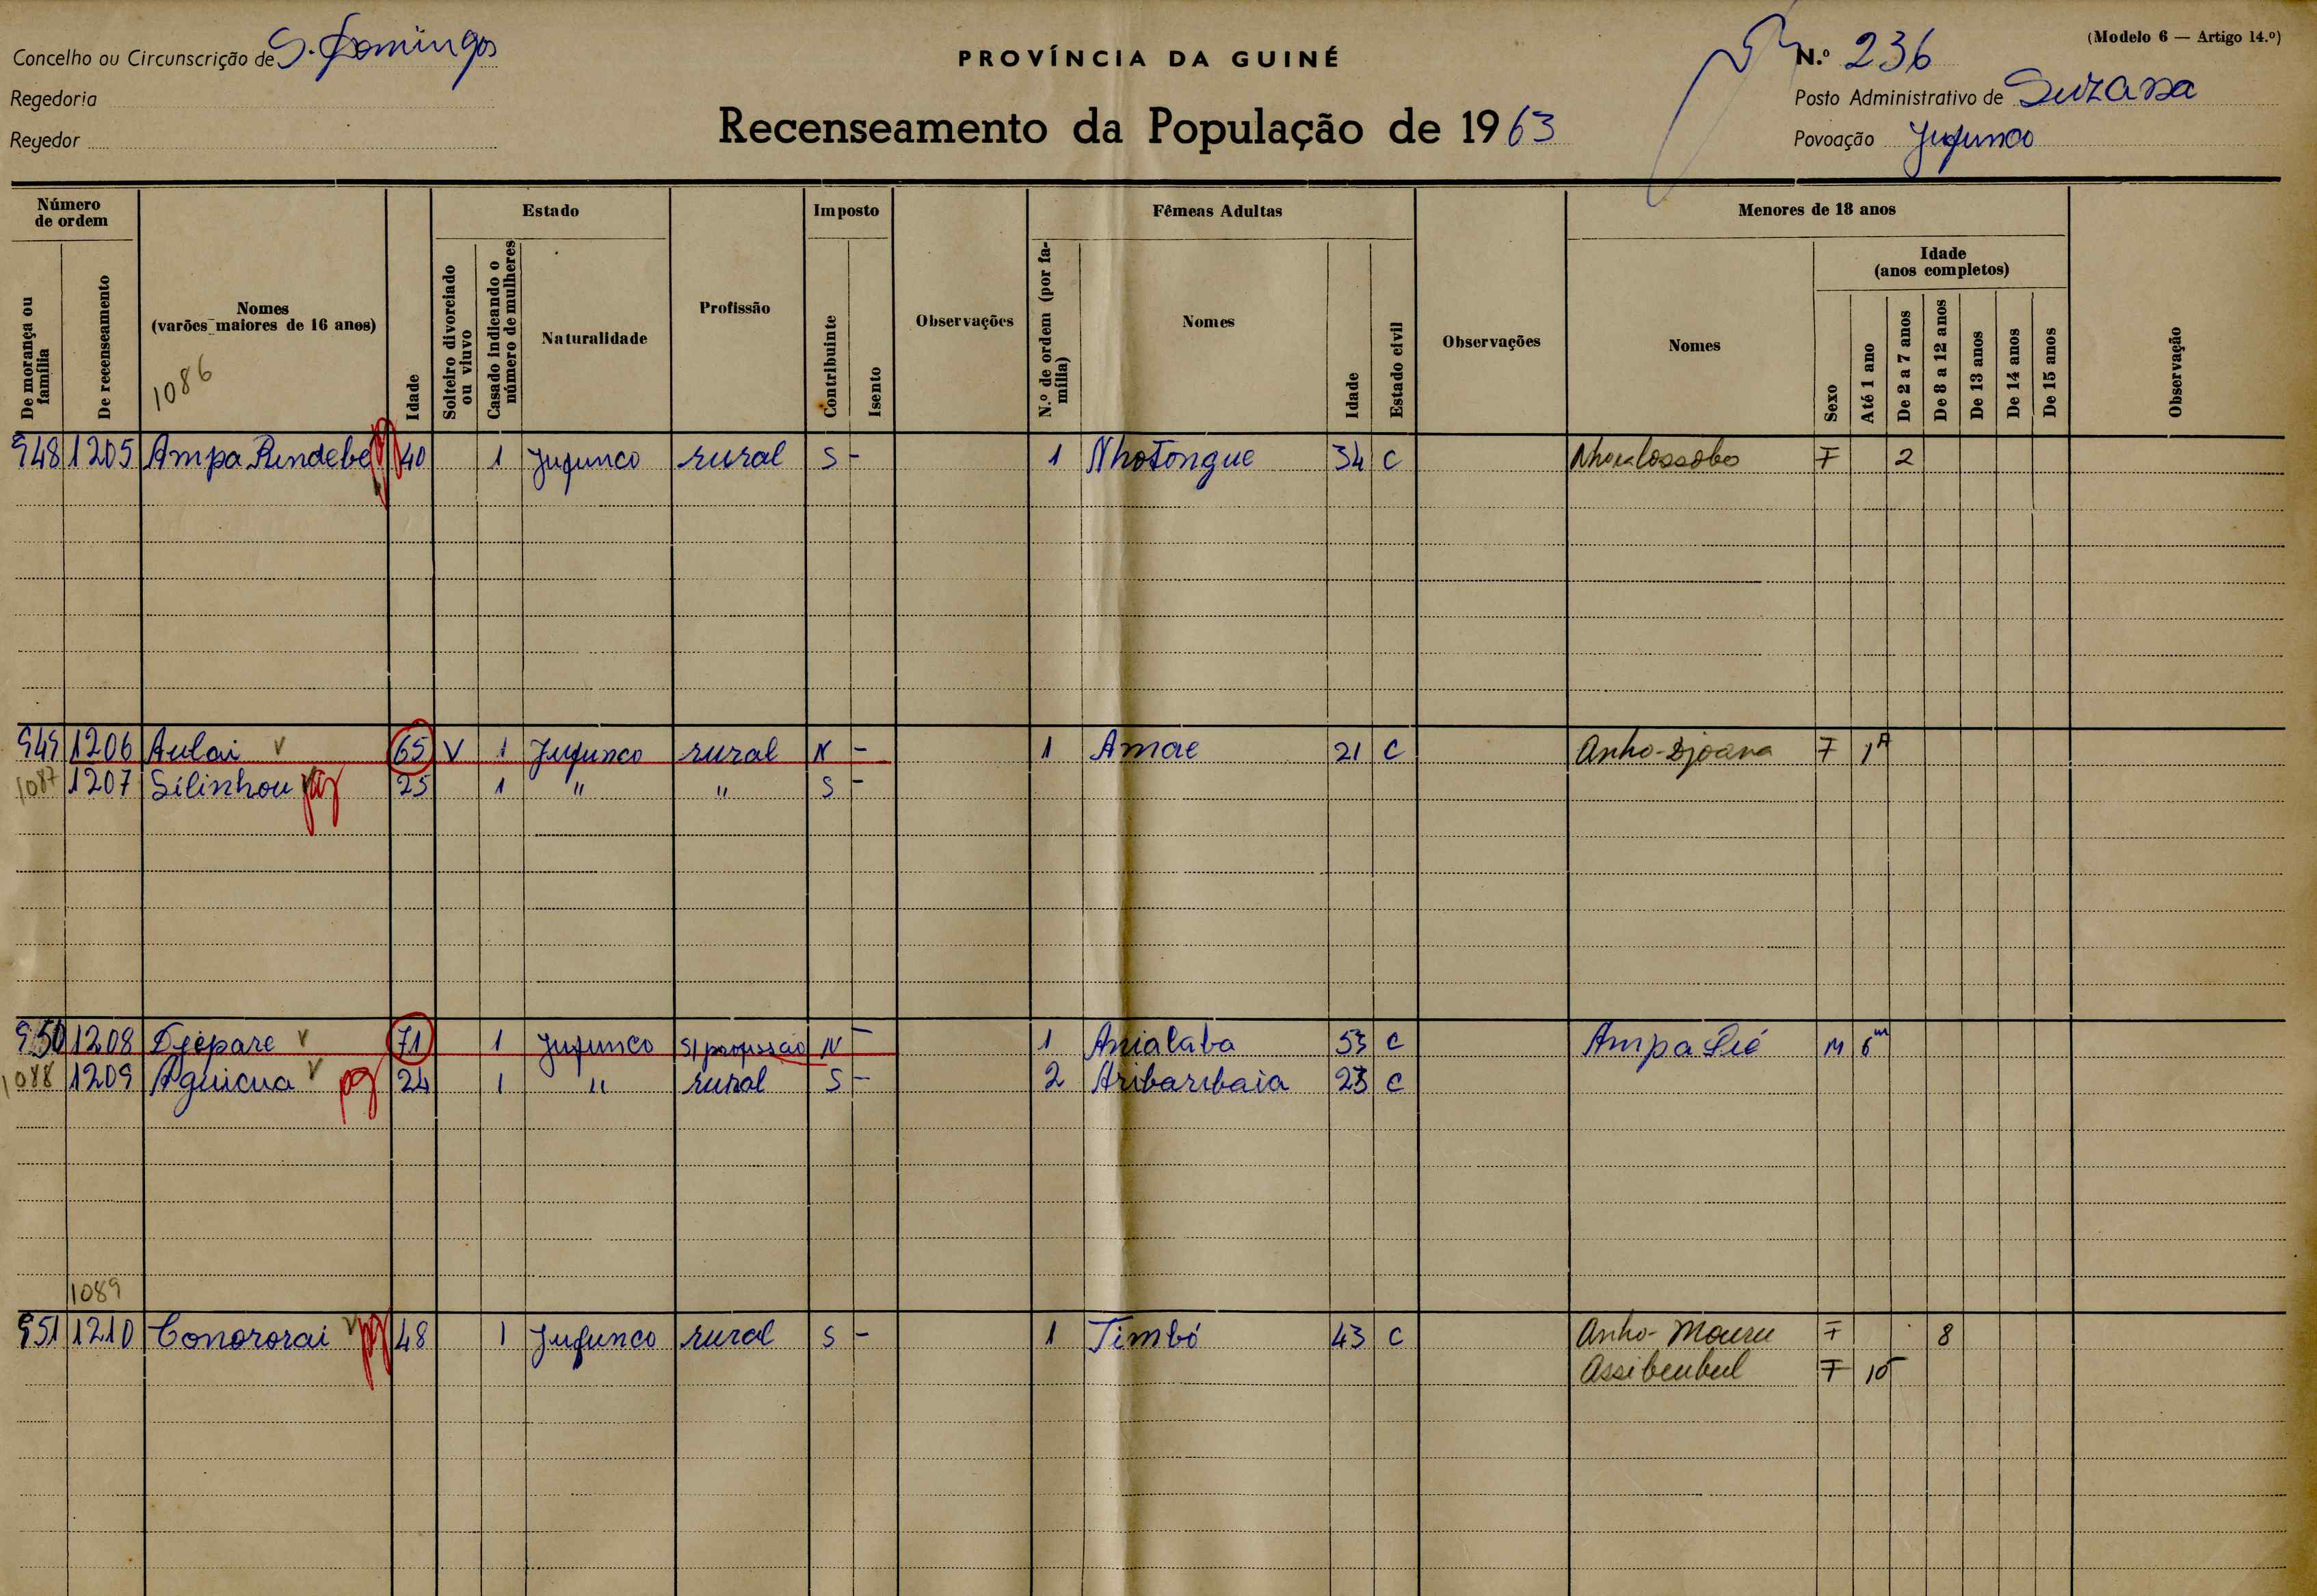 Concelho ou Circunscrição de S. Domingos
Regedoria
Regedor
PROVÍNCIA DA GUINÉ
Recenseamento da População de 1963
(Modelo 6 — Artigo 14.º)
N.º 236
Posto Administrativo de Suzana
Povoação Jufunco
Número de ordem
De morança ou família
De recenseamento
Nomes
(varões maiores de 16 anos)
1086
Idade
Estado
Solteiro divorciado ou viuvo
Casado indicando o número de mulheres
Naturalidade
Profissão
Imposto
Contribuinte
Isento
Observações
Fêmeas Adultas
N.º de ordem (por família)
Nomes
Idade
Estado civil
Observações
Menores de 18 anos
Nomes
Sexo
Idade
(anos completos)
Até 1 ano
De 2 a 7 anos
De 8 a 12 anos
De 13 anos
De 14 anos
De 15 anos
Observação
948 1205 Ampa Rendebe pg 40 1 Jufunco rural S - 1 Nhotongue 34 C F 2
949 1206 Aulai V 65 V 1 Jufunco rural N - 1 Amae 21 C Anho-Djoana F 1A
1087 1207 Silinhou pg 25 1 " " S -
950 1208 Djépare V 71 1 Jufunco S/profissão N - 1 Anialaba 53 C Ampa Sié M 6m
1088 1209 Aguicua V pg 24 1 " rural S - 2 Aribaribaia 23 C
1089
951 1210 Conororai V pg 48 1 Jufunco rural S - 1 Timbó 43 C Anho- F 8
F